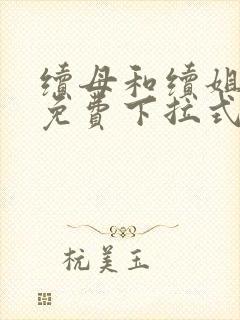 续母和续姐
免费下拉式
杭美玉